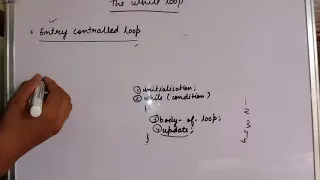 The while loop
• Entry controlled loop
① initialisation;
② while (condition)
{
③ body-of-loop;
④ update;
}